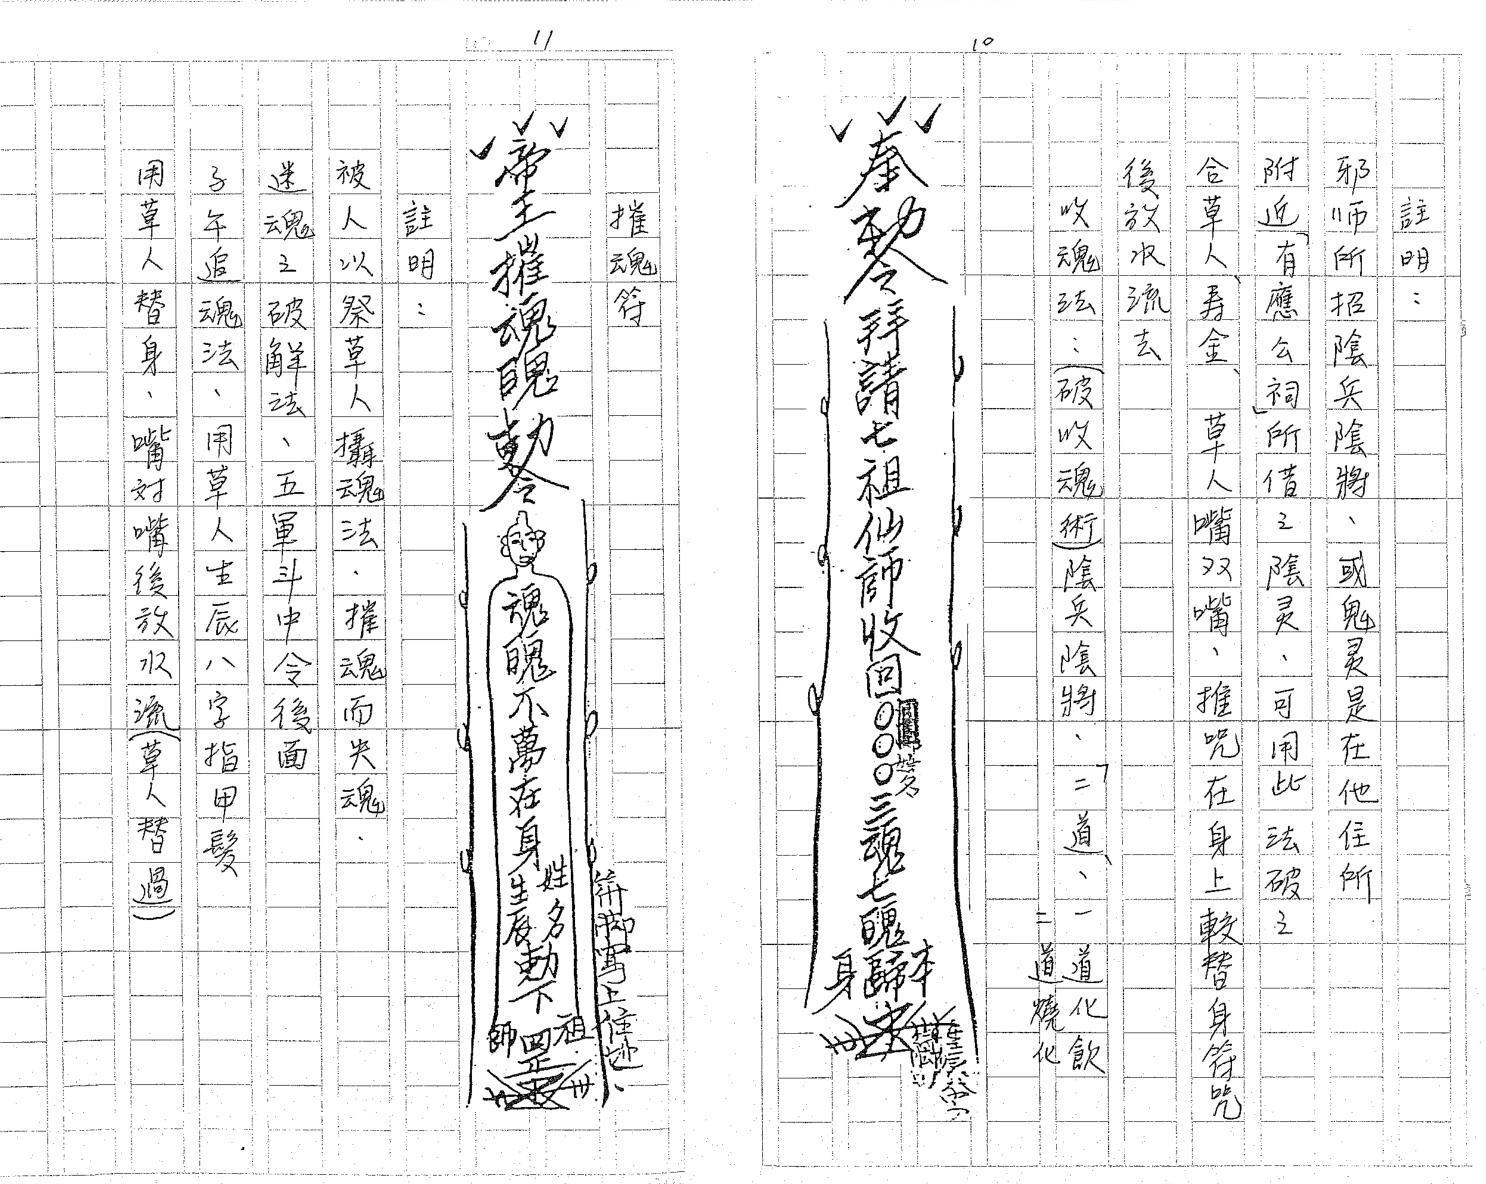 10
註明：
邪师所招陰兵陰將、或鬼灵是在他住所
附近「有應公祠」所借之陰灵、可用此法破之
合草人、寿金、草人嘴双嘴、推咒在身上較替身符咒
後放水流去
收魂法：(破收魂術)陰兵陰將、「二道」、一道化飲
二道燒化
奉勅令拜請七祖仙師收回○○○三魂七魄歸本身
姓名
11
摧魂符
帝王摧魂魄勅令
魂魄不萬在身
姓名
生辰
勅下
祖師罡
符脚寫上住址、
註明：
被人以祭草人攝魂法．摧魂而失魂．
迷魂之破解法、五軍斗中令後面
子午追魂法、用草人生辰八字指甲髮
用草人替身、嘴对嘴後放水流(草人替過)